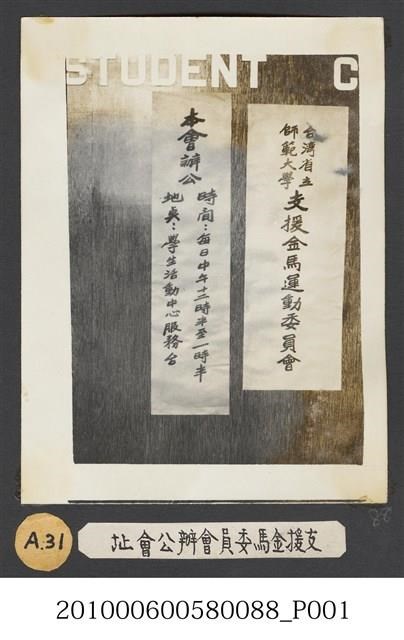 STUDENT C
台湾省立
師範大學
支援金馬運動委員會
本會辦公
時間：每日中午十二時半至一時半
地點：學生活動中心服務台
88
A.31
支援金馬委員會辦公會址
201000600580088_P001